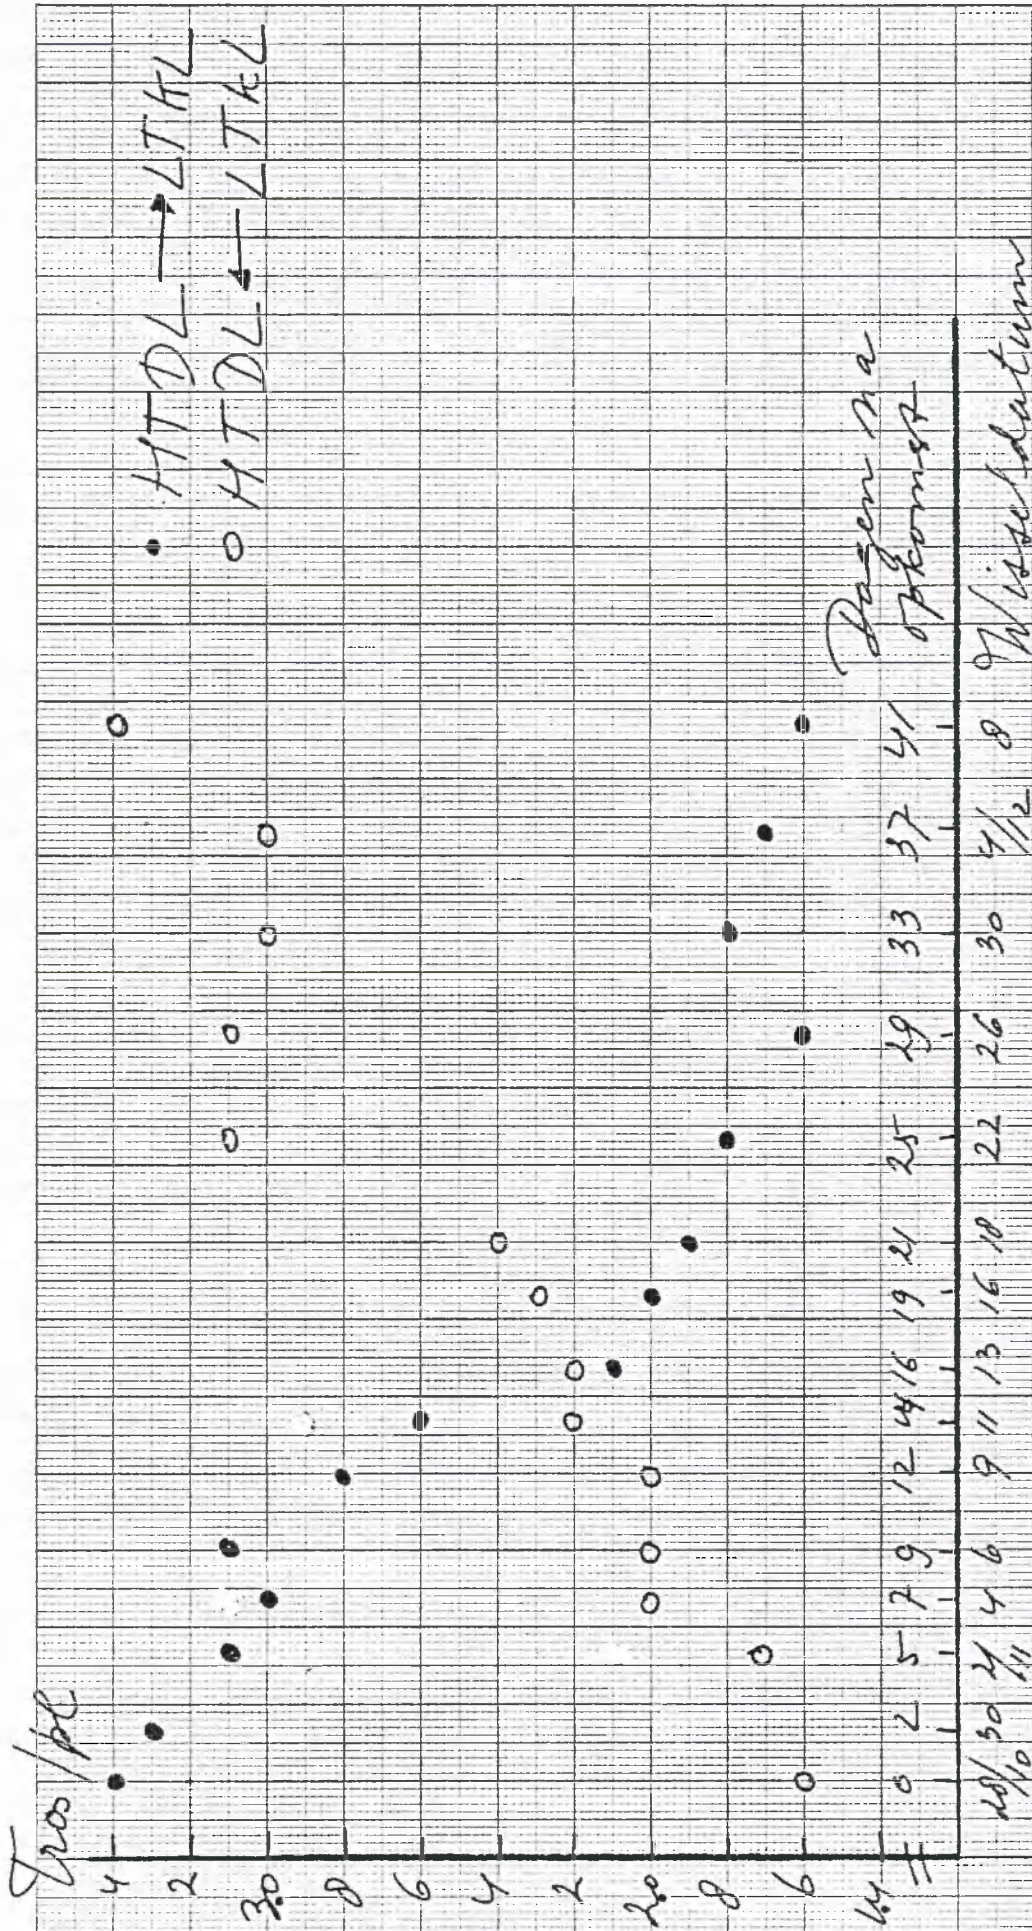 Tros/pl
4
2
3.0
8
6
4
2
2.0
8
6
1.4
HTDL → LTKL
HTDL ← LTKL
0 2 5 7 9 12 14 16 19 21 25 29 33 37 41 Dagen na
opkomst
28/10 30 2/11 4 6 9 11 13 16 18 22 26 30 4/12 8 Wisseldatum